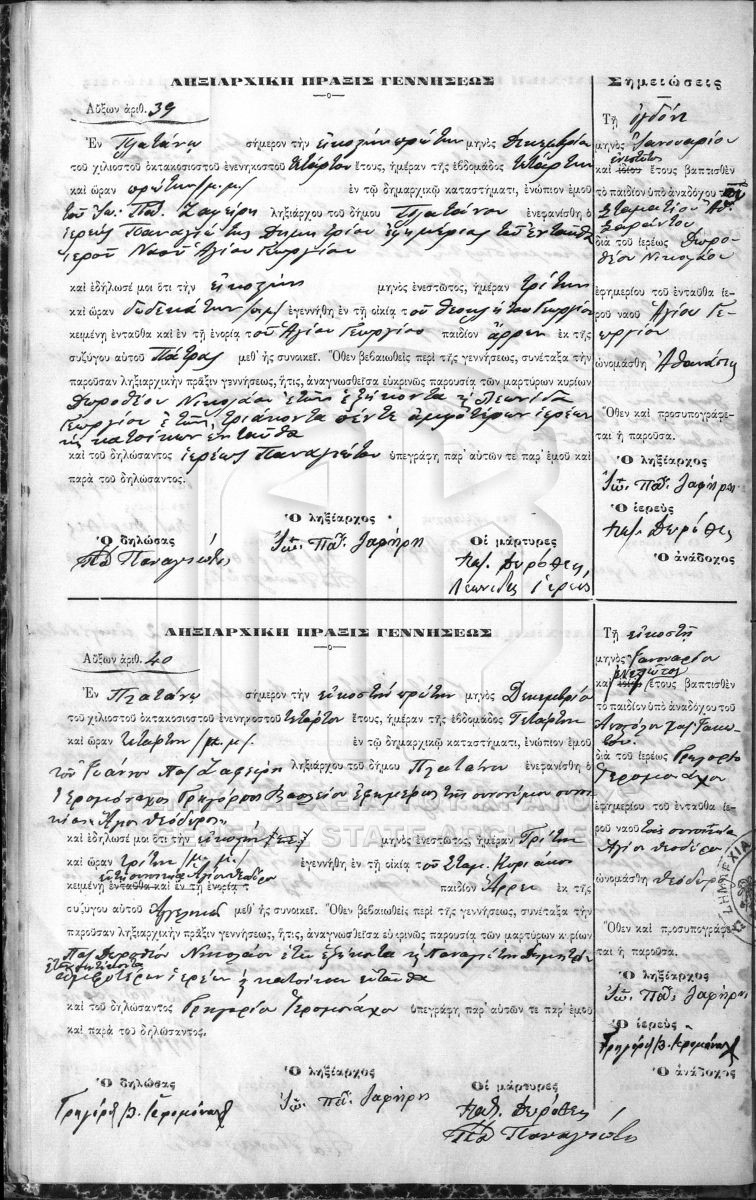 ΛΗΞΙΑΡΧΙΚΗ ΠΡΑΞΙΣ ΓΕΝΝΗΣΕΩΣ
Αὔξων ἀριθ. 39
Ἐν Πλατάνῳ σήμερον τὴν εἰκοστὴν πρώτην μηνὸς Δεκεμβρίου
τοῦ χιλιοστοῦ ὀκτακοσιοστοῦ ἐνενηκοστοῦ τετάρτου ἔτους, ἡμέραν τῆς ἑβδομάδος Τετάρτην
καὶ ὥραν πρώτην μ.μ. ἐν τῷ δημαρχικῷ καταστήματι, ἐνώπιον ἐμοῦ
τοῦ Ἰω. Πα. Ζαφείρη ληξιάρχου τοῦ δήμου Πλατάνου ἐνεφανίσθη ὁ
ἱερεὺς Παναγιώτης Δημητρίου ἐφημέριος τοῦ ἐνταῦθα
ἱεροῦ Ναοῦ Ἁγίου Γεωργίου
καὶ ἐδήλωσέ μοι ὅτι τὴν εἰκοστὴν μηνὸς ἐνεστῶτος, ἡμέραν τρίτην
καὶ ὥραν δωδεκάτην ἐγεννήθη ἐν τῇ οἰκίᾳ τοῦ Γεωργίου
κειμένῃ ἐνταῦθα καὶ ἐν τῇ ἐνορίᾳ τοῦ Ἁγίου Γεωργίου παιδίον ἄρρεν ἐκ τῆς
συζύγου αὐτοῦ Πάτρας μεθ' ἧς συνοικεῖ. Ὅθεν βεβαιωθεὶς περὶ τῆς γεννήσεως, συνέταξα τὴν
παροῦσαν ληξιαρχικὴν πρᾶξιν γεννήσεως, ἥτις, ἀναγνωσθεῖσα εὐκρινῶς παρουσίᾳ τῶν μαρτύρων κυρίων
Δωροθέου Νικολάου ἐτῶν ἑξήκοντα κ Λεωνίδα
Γεωργίου ἐτῶν τριάκοντα πέντε ἀμφοτέρων ἱερέων
κ κατοίκων ἐνταῦθα
καὶ τοῦ δηλώσαντος ἱερέως Παναγιώτου ὑπεγράφη παρ' αὐτῶν τε παρ' ἐμοῦ καὶ
παρὰ τοῦ δηλώσαντος.
Ὁ ληξίαρχος
Ὁ δηλώσας Ἰω. Πα. Ζαφήρη Οἱ μάρτυρες
Παναγιώτης Παπ. Δωρόθεος
Λεωνίδας ἱερεύς
Σημειώσεις
Τῇ ὀγδόῃ
μηνὸς Ἰανουαρίου
ἐνεστῶτος
καὶ ἰδίου ἔτους βαπτισθὲν
τὸ παιδίον ὑπὸ ἀναδόχου τοῦ
Σταματίου Ἀθ.
Σαράντου
διὰ τοῦ ἱερέως Δωρο-
θέου Νικολάου
ἐφημερίου τοῦ ἐνταῦθα ἱε-
ροῦ ναοῦ Ἁγίου Γε-
ωργίου
ὠνομάσθη Ἀθανάσιος
Ὅθεν καὶ προσυπογράφε-
ται ἡ παροῦσα.
Ὁ ληξίαρχος
Ἰω. Πα. Ζαφήρη
Ὁ ἱερεὺς
Παπ. Δωρόθεος
Ὁ ἀνάδοχος
ΛΗΞΙΑΡΧΙΚΗ ΠΡΑΞΙΣ ΓΕΝΝΗΣΕΩΣ
Αὔξων ἀριθ. 40
Ἐν Πλατάνῳ σήμερον τὴν εἰκοστὴν πρώτην μηνὸς Δεκεμβρίου
τοῦ χιλιοστοῦ ὀκτακοσιοστοῦ ἐνενηκοστοῦ τετάρτου ἔτους, ἡμέραν τῆς ἑβδομάδος Τετάρτην
καὶ ὥραν τετάρτην μ.μ. ἐν τῷ δημαρχικῷ καταστήματι, ἐνώπιον ἐμοῦ
τοῦ Ἰωάννου Πα Ζαφείρη ληξιάρχου τοῦ δήμου Πλατάνου ἐνεφανίσθη ὁ
Ἱερομόναχος Γρηγόριος Βασιλείου ἐφημέριος τῆς συνοικίας
Ἅγιοι Θεόδωροι
καὶ ἐδήλωσέ μοι ὅτι τὴν εἰκοστὴν μηνὸς ἐνεστῶτος, ἡμέραν Τρίτην
καὶ ὥραν τρίτην μ.μ. ἐγεννήθη ἐν τῇ οἰκίᾳ τοῦ Σταμ. Κυριακοῦ
κειμένῃ ἐνταῦθα καὶ ἐν τῇ ἐνορίᾳ τ παιδίον Ἄρρεν ἐκ τῆς
συζύγου αὐτοῦ Ἀγγελικῆς μεθ' ἧς συνοικεῖ. Ὅθεν βεβαιωθεὶς περὶ τῆς γεννήσεως, συνέταξα τὴν
παροῦσαν ληξιαρχικὴν πρᾶξιν γεννήσεως, ἥτις, ἀναγνωσθεῖσα εὐκρινῶς παρουσίᾳ τῶν μαρτύρων κυρίων
Παπ Δωροθέου Νικολάου ἐτῶν ἑξήκοντα κ Παναγιώτη Δημητρίου
ἀμφοτέρων ἱερέων κ κατοίκων ἐνταῦθα
καὶ τοῦ δηλώσαντος Γρηγορίου Ἱερομονάχου ὑπεγράφη παρ' αὐτῶν τε παρ' ἐμοῦ
καὶ παρὰ τοῦ δηλώσαντος.
Ὁ ληξίαρχος
Ὁ δηλώσας Ἰω. Πα. Ζαφήρη Οἱ μάρτυρες
Γρηγόριος Β. Ἱερομόναχος Παπ. Δωρόθεος
Παναγιώτης
Τῇ εἰκοστῇ
μηνὸς Ἰανουαρίου
ἐνεστῶτος
καὶ ἰδίου ἔτους βαπτισθὲν
τὸ παιδίον ὑπὸ ἀναδόχου τοῦ
διὰ τοῦ ἱερέως Γρηγορίου
Ἱερομονάχου
ἐφημερίου τοῦ ἐνταῦθα ἱε-
ροῦ ναοῦ τῆς συνοικίας
Ἁγίοι Θεόδωροι
ὠνομάσθη Θεόδωρος
Ὅθεν καὶ προσυπογράφε-
ται ἡ παροῦσα.
Ὁ ληξίαρχος
Ἰω. Πα. Ζαφήρη
Ὁ ἱερεὺς
Γρηγόριος Β. Ἱερομόναχος
Ὁ ἀνάδοχος
GENERAL STATE ARCHIVES